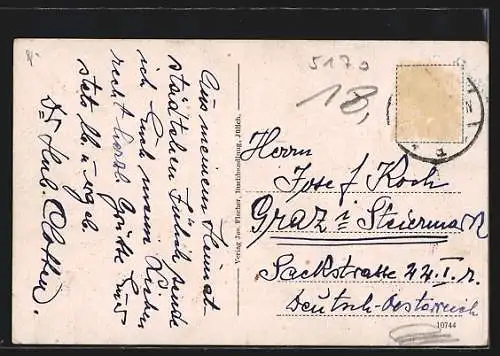 Aus meinem Heimat-
städtchen Jülich sende
ich Euch meine Lieben
recht herzl. Grüße Euer
stets lb. u. erg eb.
Dr Hub.
Verlag Jos. Fischer, Buchhandlung, Jülich.
5170
18,
Herrn
Josef Koch
Graz i Steiermark
Sackstrasse 22 I. r.
Deutsch-Oesterreich
10744